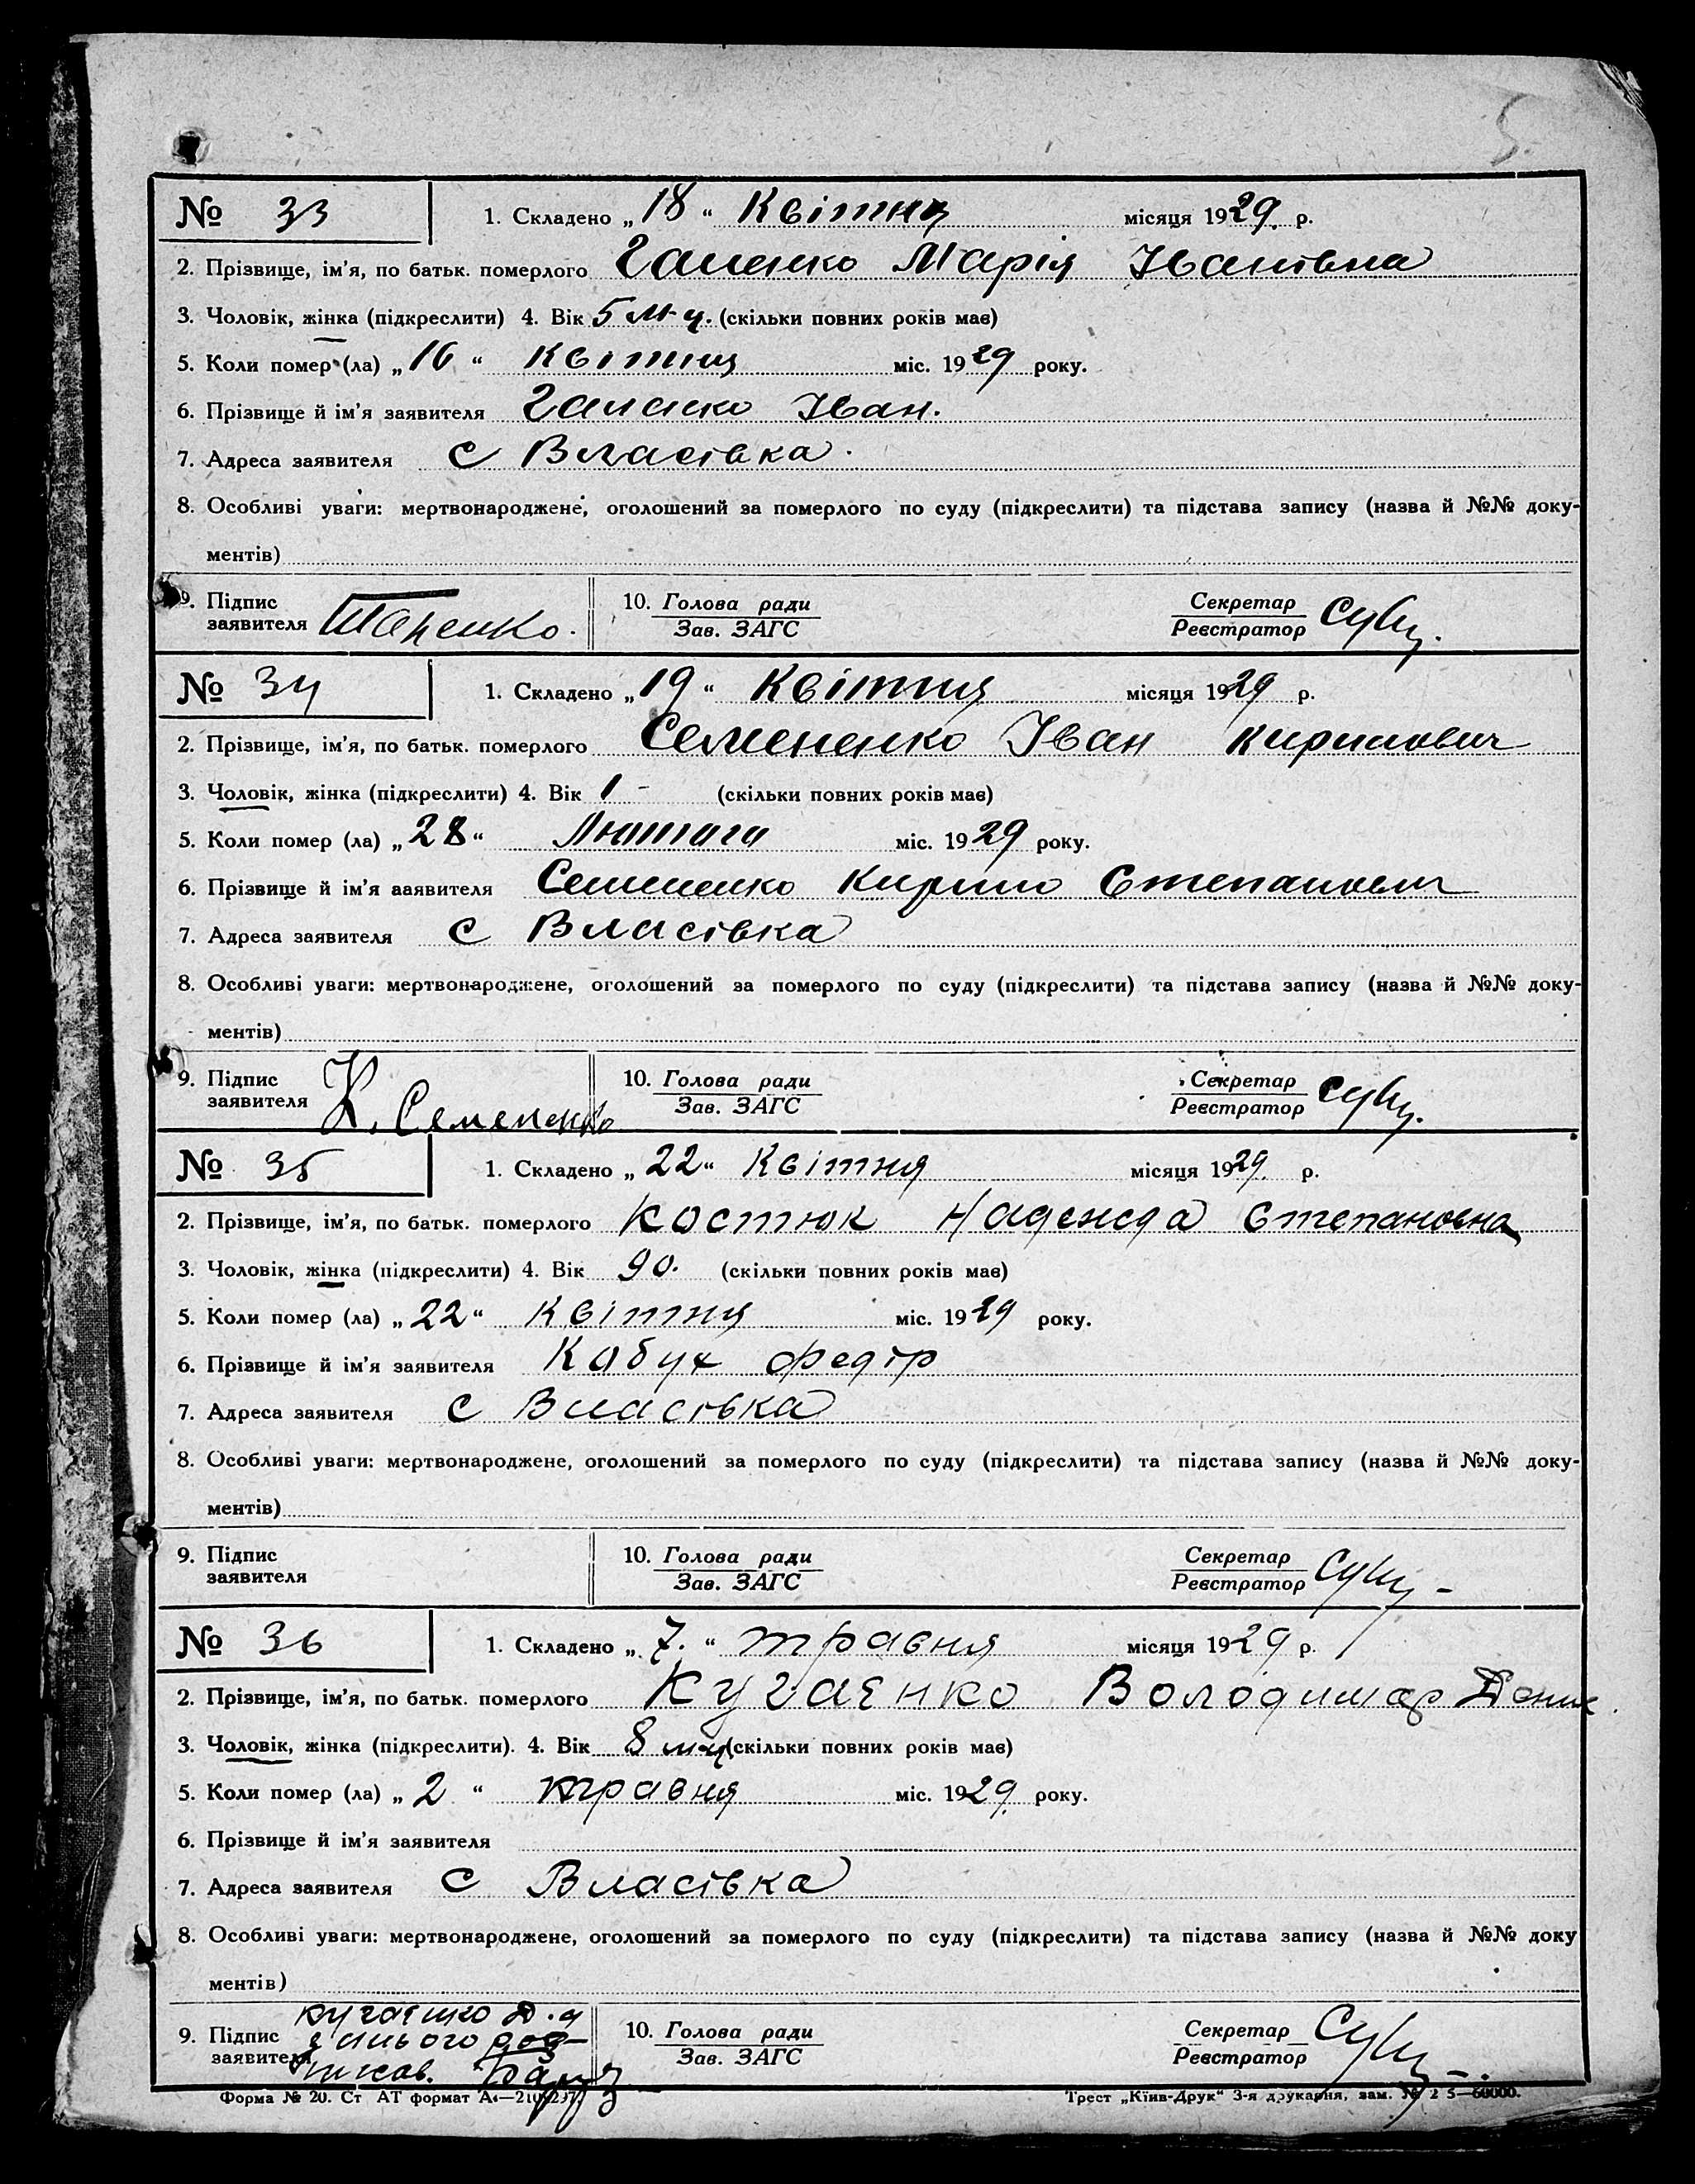 5.
№ 33 1. Складено „18“ Квітня місяця 1929. р.
2. Прізвище, ім'я, по батьк. померлого Галенко Марія Іванівна
3. Чоловік, жінка (підкреслити) 4. Вік 5 м-ц. (скільки повних років має)
5. Коли помер (ла) „16“ Квітня міс. 1929 року.
6. Прізвище й ім'я заявителя Галенко Іван.
7. Адреса заявителя с Власівка.
8. Особливі уваги: мертвонароджене, оголошений за померлого по суду (підкреслити) та підстава запису (назва й №№ доку-
ментів)
9. Підпис заявителя 10. Голова ради Зав. ЗАГС Секретар Реєстратор
№ 34 1. Складено „19“ Квітня місяця 1929 р.
2. Прізвище, ім'я, по батьк. померлого Семененко Іван Кирилович
3. Чоловік, жінка (підкреслити) 4. Вік 1 - (скільки повних років має)
5. Коли помер (ла) „28“ Лютого міс. 1929 року.
6. Прізвище й ім'я заявителя Семененко Кирило Степанович
7. Адреса заявителя с Власівка
8. Особливі уваги: мертвонароджене, оголошений за померлого по суду (підкреслити) та підстава запису (назва й №№ доку-
ментів)
9. Підпис заявителя К. Семененко 10. Голова ради Зав. ЗАГС Секретар Реєстратор
№ 35 1. Складено „22“ Квітня місяця 1929. р.
2. Прізвище, ім'я, по батьк. померлого Костюк Надежда Степановна
3. Чоловік, жінка (підкреслити) 4. Вік 90. (скільки повних років має)
5. Коли помер (ла) „22“ Квітня міс. 1929 року.
6. Прізвище й ім'я заявителя Кабук Федір
7. Адреса заявителя с Власівка
8. Особливі уваги: мертвонароджене, оголошений за померлого по суду (підкреслити) та підстава запису (назва й №№ доку-
ментів)
9. Підпис заявителя 10. Голова ради Зав. ЗАГС Секретар Реєстратор
№ 36 1. Складено „7.“ травня місяця 1929 р.
2. Прізвище, ім'я, по батьк. померлого Кугаєнко Володимир Данил.
3. Чоловік, жінка (підкреслити). 4. Вік 8 м-ц (скільки повних років має)
5. Коли помер (ла) „2“ травня міс. 1929. року.
6. Прізвище й ім'я заявителя
7. Адреса заявителя с Власівка
8. Особливі уваги: мертвонароджене, оголошений за померлого по суду (підкреслити) та підстава запису (назва й №№ доку
ментів)
9. Підпис заявителя Кугаєнко Д. а 10. Голова ради Зав. ЗАГС Секретар Реєстратор
Форма № 20. Ст АТ формат А4—210×297. Трест „Київ-Друк“ 3-я друкарня, зам. №